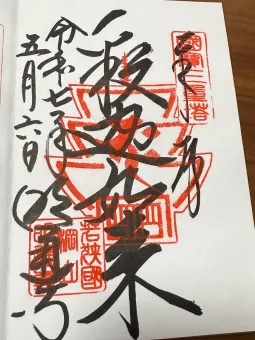 國寶三重塔
三重塔
釈迦如来
若狭國
棡山
令和七年
五月六日
明通寺